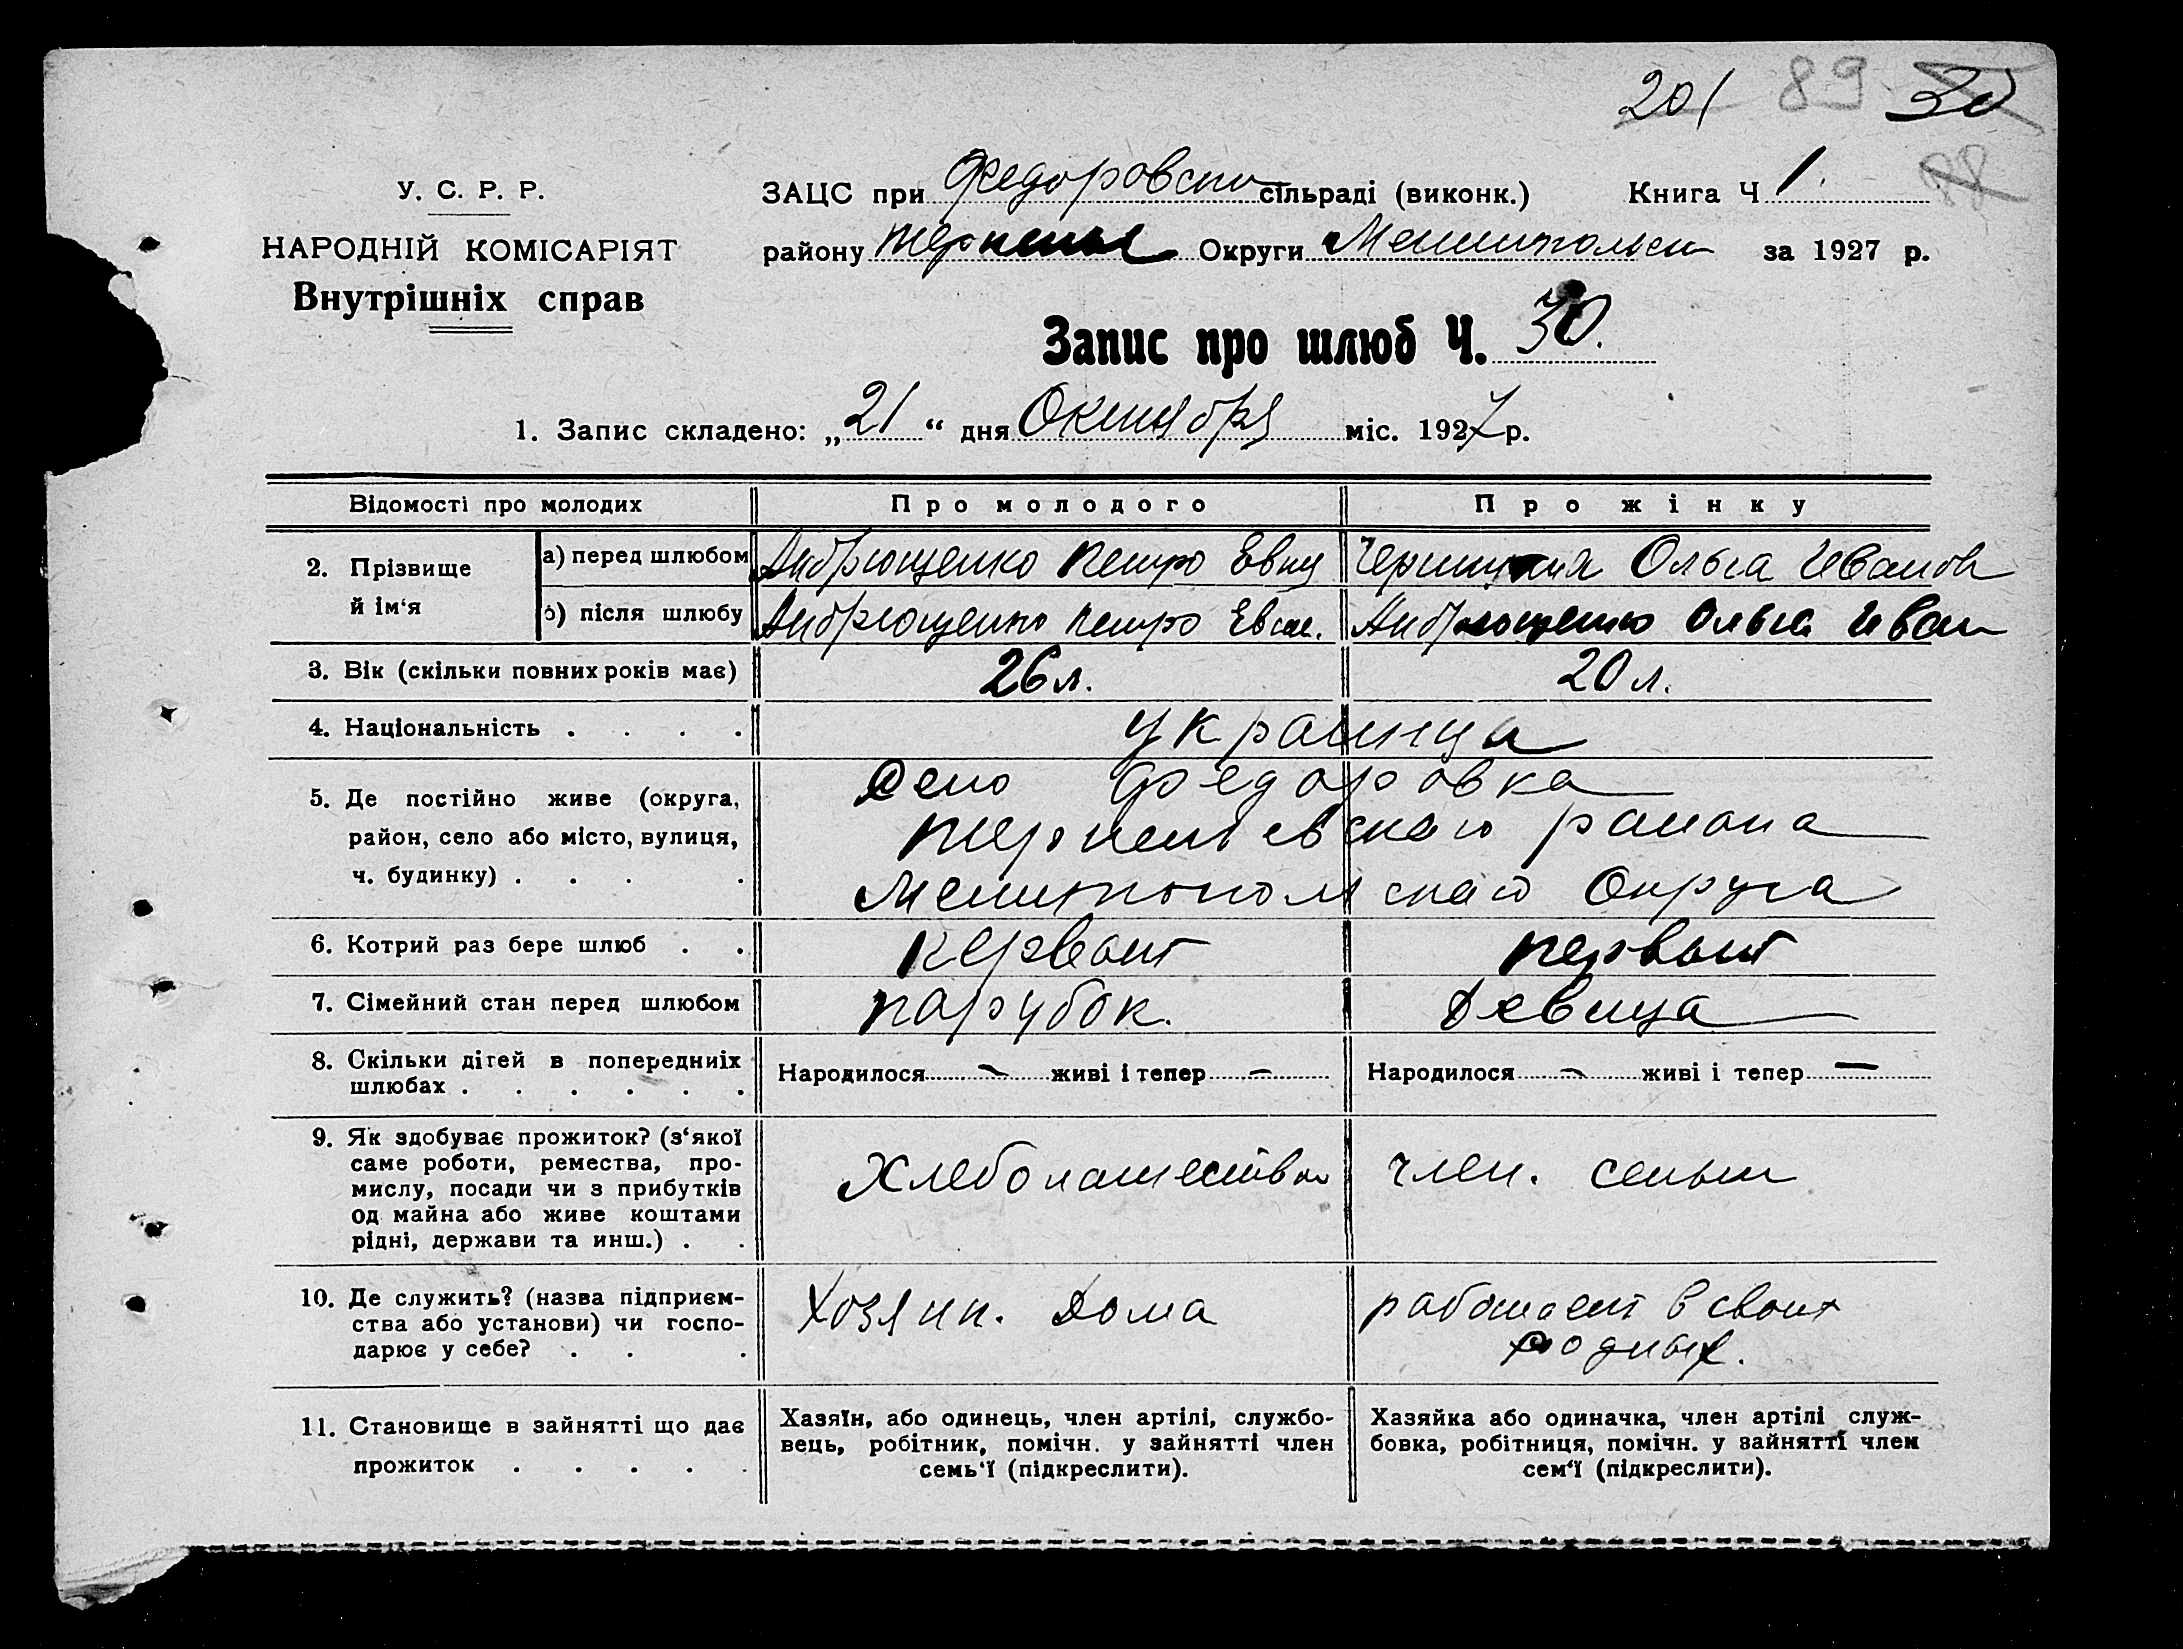 201 89 30
88
У. С. Р. Р.
НАРОДНІЙ КОМІСАРІЯТ
Внутрішніх справ
ЗАЦС при Федоровски сільраді (виконк.) Книга Ч 1.
району Терпенье Округи Мелитопольск за 1927 р.
Запис про шлюб Ч. 30.
1. Запис складено: „21“ дня Октября міс. 1927 р.
Відомості про молодих Про молодого Про жінку
2. Прізвище й ім‘я
а) перед шлюбом Андрющенко Петро Евт Ольга Иванов
б) після шлюбу Андрющенко Петро Андрющенко Ольга Иван
3. Вік (скільки повних років має) 26 л. 20 л.
4. Національність . . . . украинца
5. Де постійно живе (округа, Село Федоровка
район, село або місто, вулиця, Терпеньевскаго района
ч. будинку) . . . . Мелитопольскаго Округа
6. Котрий раз бере шлюб . . первый первый
7. Сімейний стан перед шлюбом парубок. Девица
8. Скільки дітей в попередниіх
шлюбах . . . . . . Народилося — живі і тепер — Народилося — живі і тепер —
9. Як здобуває прожиток? (з‘якої
саме роботи, ремества, про-
мислу, посади чи з прибутків
од майна або живе коштами
рідні, держави та инш.) . .
Хлебопашество член. семьи
10. Де служить? (назва підприєм-
ства або установи) чи госпо-
дарює у себе? . . .
Хозяин. Дома работает в своих
родных.
11. Становище в зайнятті що дає
прожиток . . . . .
Хазяїн, або одинець, член артілі, службо-
вець, робітник, помічн. у зайнятті член
семь‘ї (підкреслити).
Хазяйка або одиначка, член артілі служ-
бовка, робітниця, помічн. у зайнятті член
сем‘ї (підкреслити).